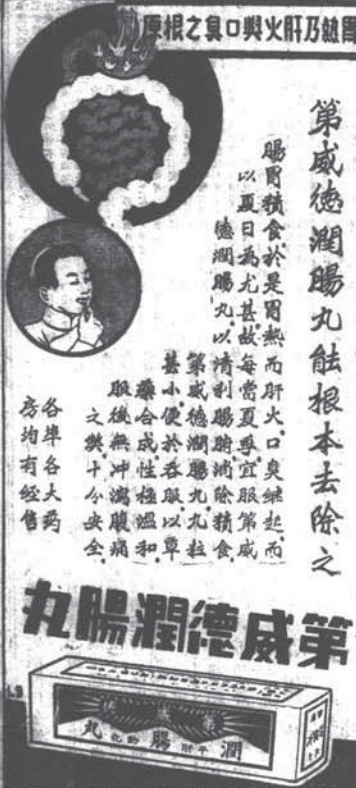 胃熱乃肝火與口臭之根原
第威德潤腸丸能根本去除之
腸胃積食於是胃熱而肝火口臭繼起而
以夏日為尤甚故每當夏季宜服第威
德潤腸丸以清利腸腑消除積食
第威德潤腸丸丸粒
甚小便於吞服以草
藥合成性極溫和
服後無沖瀉腹痛
之弊十分安全
各埠各大药
房均有經售
第威德潤腸丸
潤腸丸